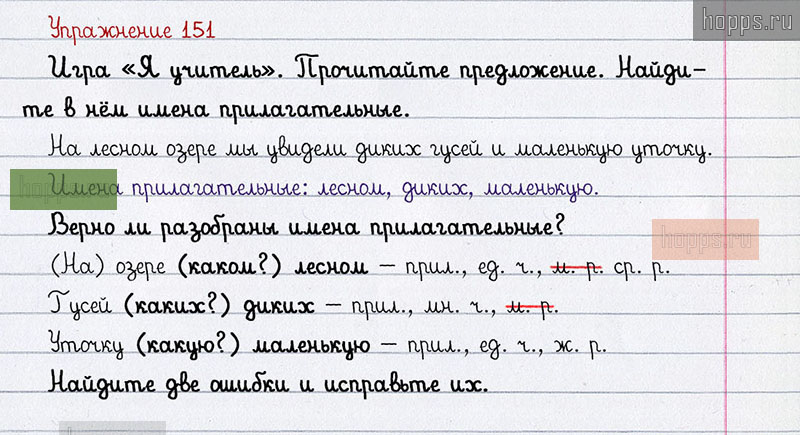 hopps.ru
Упражнение 151
Игра «Я учитель». Прочитайте предложение. Найди–
те в нём имена прилагательные.
На лесном озере мы увидели диких гусей и маленькую уточку.
Имена прилагательные: лесном, диких, маленькую.
hopps.ru
Верно ли разобраны имена прилагательные?
hopps.ru
(На) озере (каком?) лесном – прил., ед. ч., м. р. ср. р.
Гусей (каких?) диких – прил., мн. ч., м. р.
Уточку (какую?) маленькую – прил., ед. ч., ж. р.
Найдите две ошибки и исправьте их.